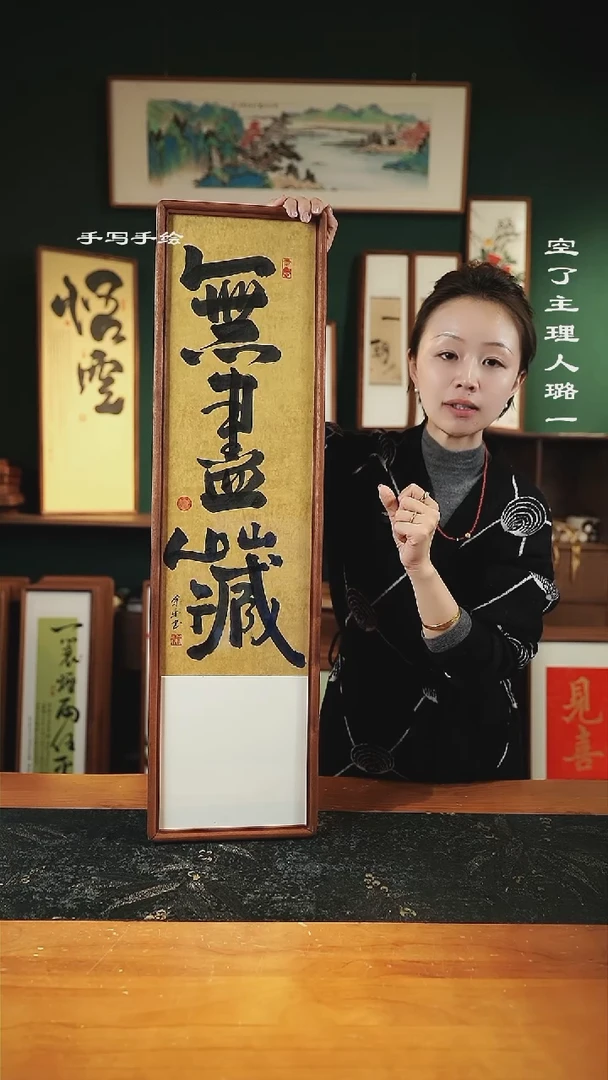 手写手绘
空了主理人璐一
無盡藏
悟空
一蓑烟雨任平
見喜